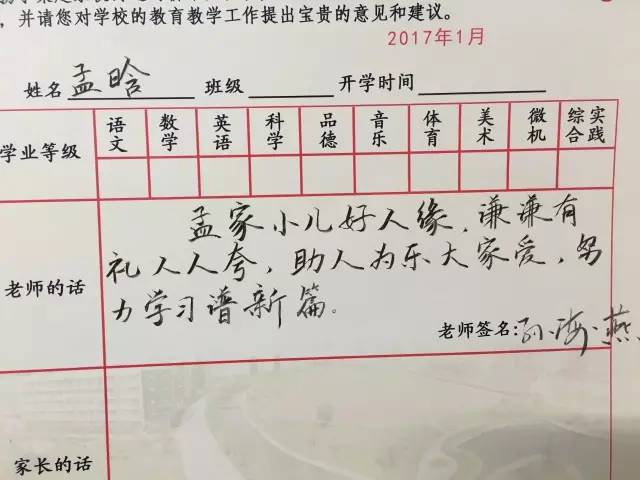 ,并请您对学校的教育教学工作提出宝贵的意见和建议。
2017年1月
姓名 孟晗 班级 开学时间
学业等级 语文 数学 英语 科学 品德 音乐 体育 美术 微机 综合实践
孟家小儿好人缘,谦谦有
礼人人夸,助人为乐大家爱,努
老师的话
力学习谱新篇。
老师签名:孙海燕
家长的话